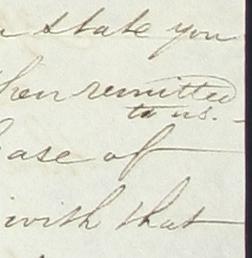 state you
then remitted
to us.
ease of
wish that